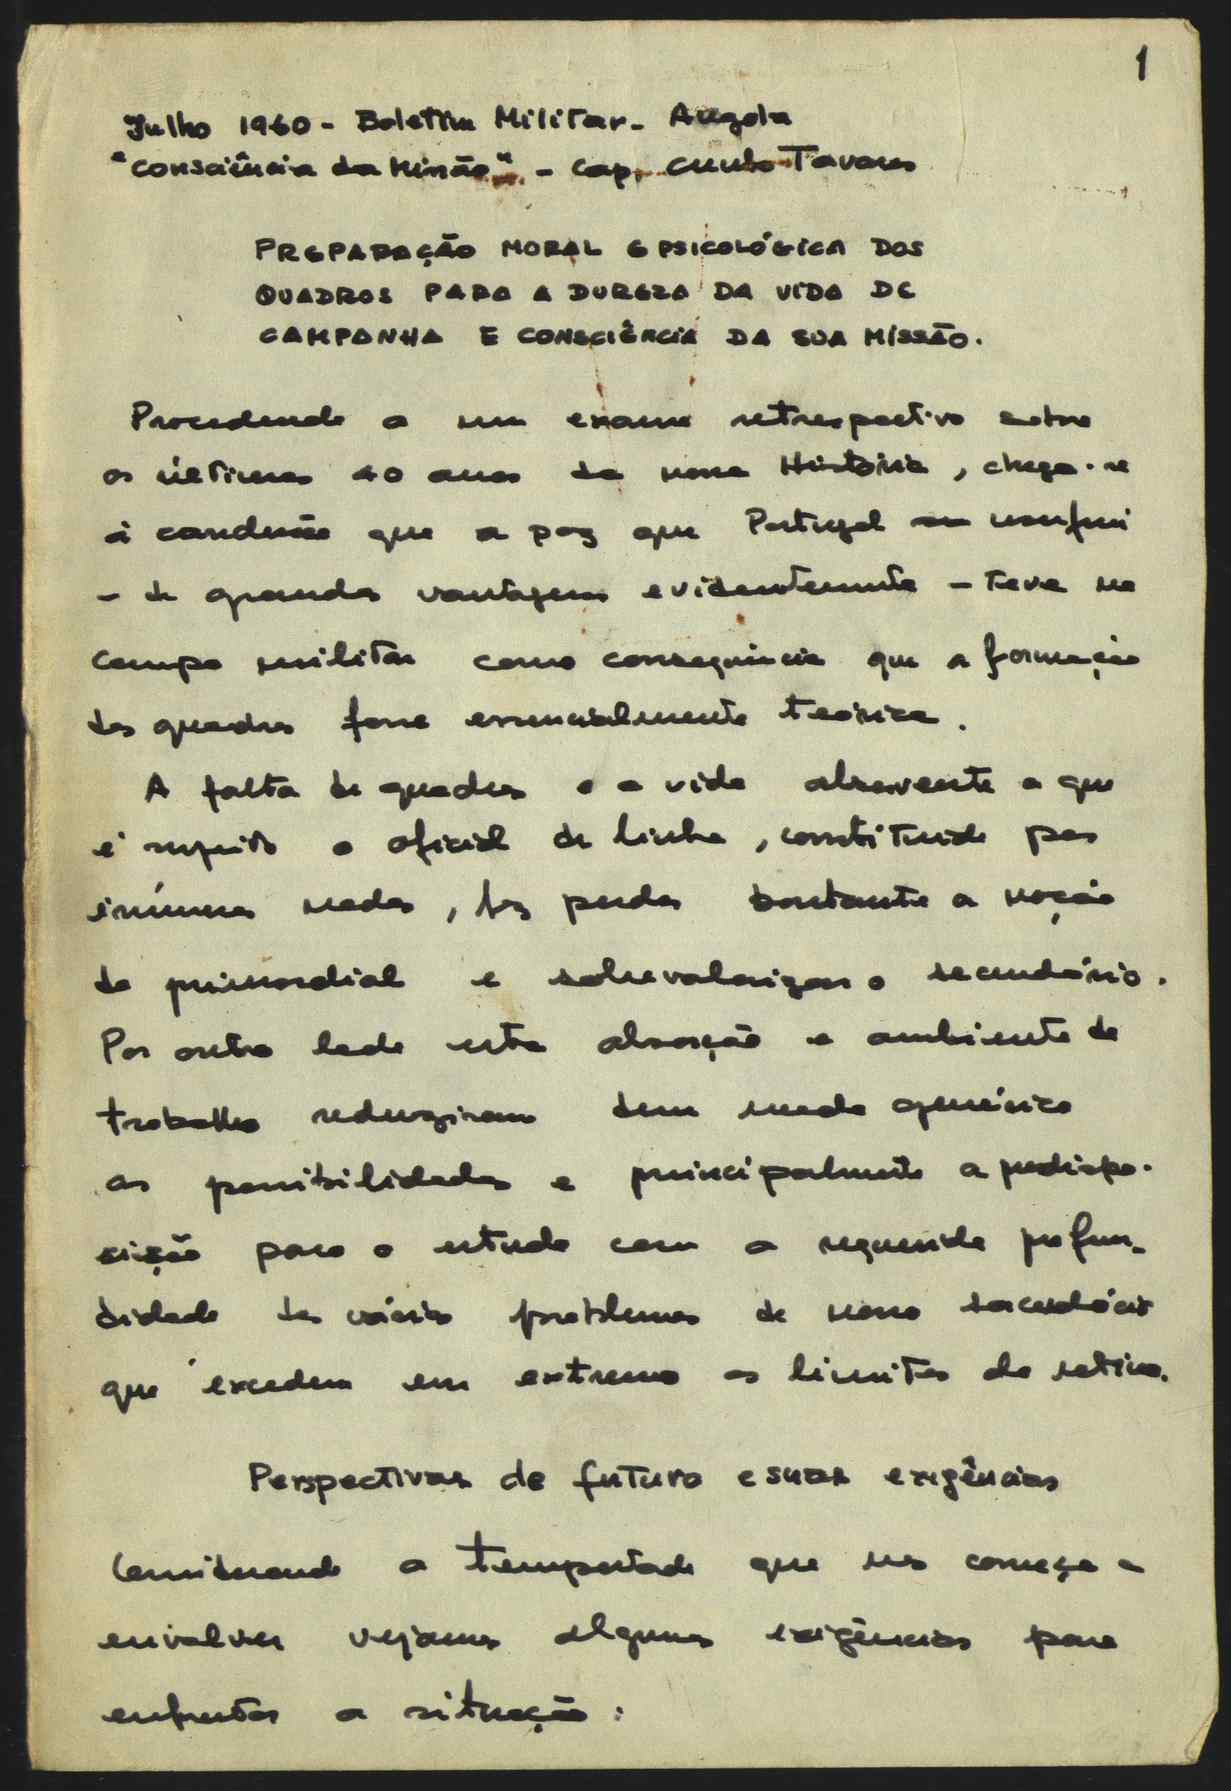 1
Julho 1960 - Boletim Militar - Angola
"Consciência da Missão" - Cap. Tavares
PREPARAÇÃO MORAL E PSICOLÓGICA DOS
QUADROS PARA A DUREZA DA VIDA DE
CAMPANHA E CONSCIÊNCIA DA SUA MISSÃO.
Procedendo a um exame retrospectivo sobre
os últimos 40 anos da nossa História, chega-se
à conclusão que a paz que Portugal usufrui
- de grandes vantagens evidentemente - teve no
campo militar como consequência que a formação
dos quadros fosse essencialmente teórica.
A falta de quadros e a vida absorvente a que
é sujeito o oficial de linha, constituida por
inúmeros nadas, faz perder bastante a noção
do primordial e sobrevalorizar o secundário.
Por outro lado esta absorção e ambiente de
trabalho reduziram dum modo genérico
as possibilidades e principalmente a predispo-
sição para o estudo com a requerida profun-
didade dos vários problemas do nosso sacerdócio
que excedem em extremo os limites da rotina.
Perspectivas de futuro e suas exigências
Considerando a tempestade que nos começa a
envolver vejamos algumas exigências para
enfrentar a situação: